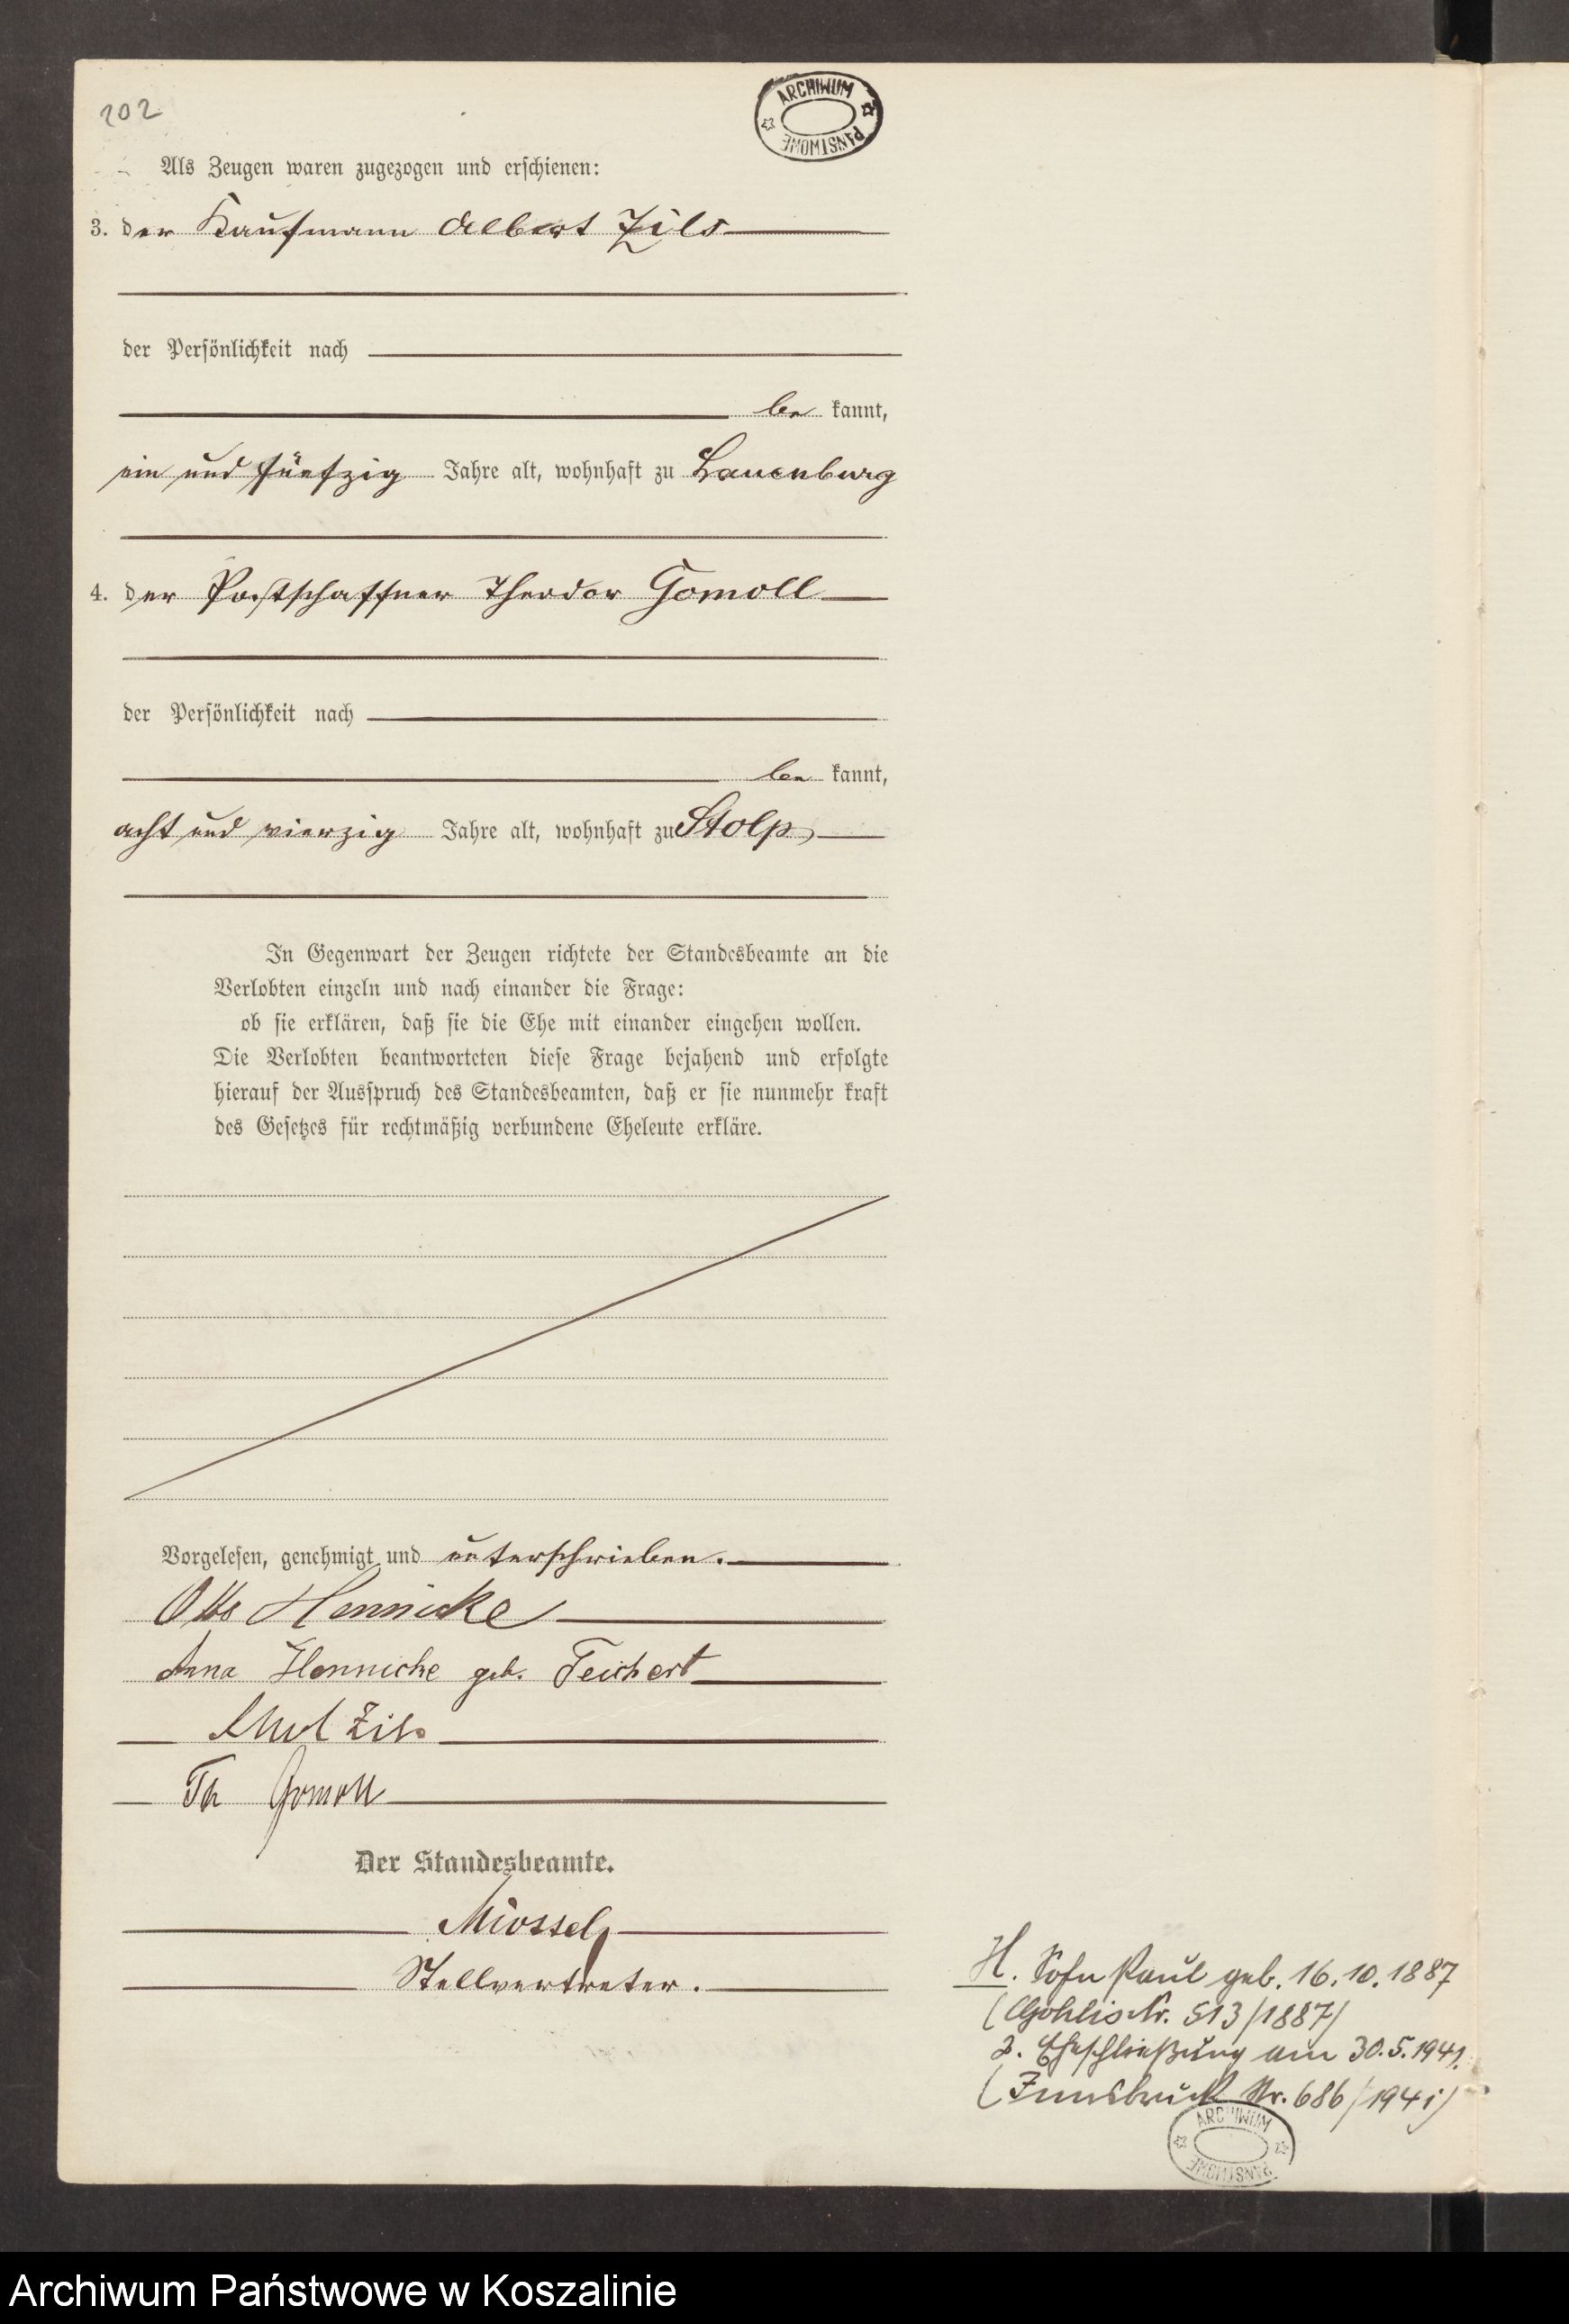 202
ARCHIWUM PAŃSTWOWE
Als Zeugen waren zugezogen und erschienen:
3. der Kaufmann Albert Zils
der Persönlichkeit nach
be kannt,
ein und fünfzig Jahre alt, wohnhaft zu Lauenburg
4. der Postschaffner Theodor Gomoll
der Persönlichkeit nach
be kannt,
acht und vierzig Jahre alt, wohnhaft zu Stolp
In Gegenwart der Zeugen richtete der Standesbeamte an die
Verlobten einzeln und nach einander die Frage:
ob sie erklären, daß sie die Ehe mit einander eingehen wollen.
Die Verlobten beantworteten diese Frage bejahend und erfolgte
hierauf der Ausspruch des Standesbeamten, daß er sie nunmehr kraft
des Gesetzes für rechtmäßig verbundene Eheleute erkläre.
Vorgelesen, genehmigt und unterschrieben.
Otto Hennicke
Anna Hennicke geb. Teichert
Zils
Th Gomoll
Der Standesbeamte.
Stellvertreter.
H. Sohn Paul geb. 16.10.1887
(Gohlis Nr. 513/1887)
2. Eheschließung am 30.5.1941.
(Innsbruck Nr. 686/1941)
ARCHIWUM PAŃSTWOWE
Archiwum Państwowe w Koszalinie